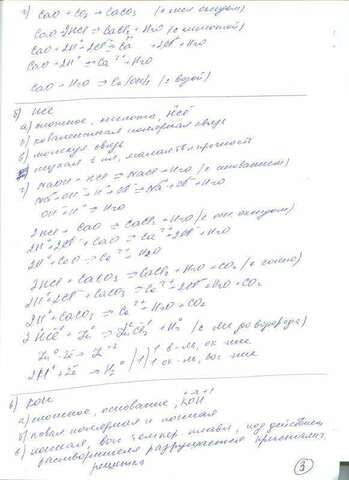 г) CaO + CO₂ → CaCO₃ (с кисл оксидом)
CaO + 2HCl → CaCl₂ + H₂O (с кислотой)
CaO + 2H⁺ + 2Cl⁻ → Ca²⁺ + 2Cl⁻ + H₂O
CaO + 2H⁺ → Ca²⁺ + H₂O
CaO + H₂O → Ca(OH)₂ (с водой)
б) HCl
а) сложное, кислота, HCl
б) ковалентная полярная связь
в) молекул связь
г) NaOH + HCl → NaCl + H₂O (с основанием)
Na⁺ + OH⁻ + H⁺ + Cl⁻ → Na⁺ + Cl⁻ + H₂O
OH⁻ + H⁺ → H₂O
2HCl + CaO → CaCl₂ + H₂O (с осн. оксидом)
2H⁺ + 2Cl⁻ + CaO → Ca²⁺ + 2Cl⁻ + H₂O
2H⁺ + CaO → Ca²⁺ + H₂O
2HCl + CaCO₃ → CaCl₂ + H₂O + CO₂ (с солью)
2H⁺ + 2Cl⁻ + CaCO₃ → Ca²⁺ + 2Cl⁻ + H₂O + CO₂
2H⁺ + CaCO₃ → Ca²⁺ + H₂O + CO₂
в) KOH
а) сложное, основание, KOH
б) ковал полярная и ионная
в) ионная, выс темпер. плавл, под действием
растворителя разрушается кристалл.
решетка
3